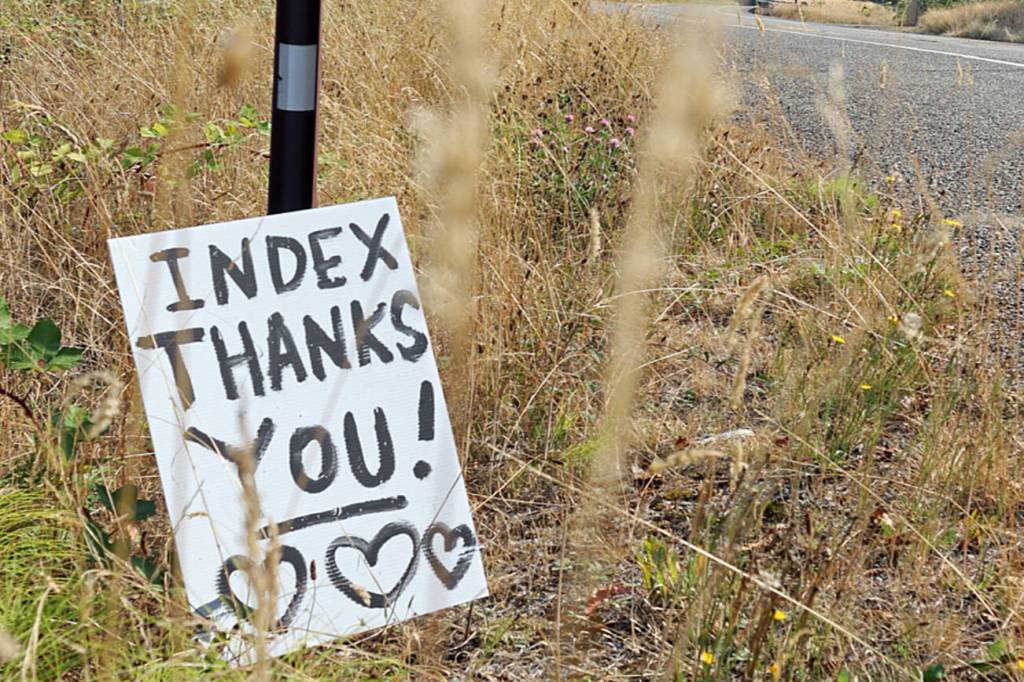 INDEX
THANKS
YOU!